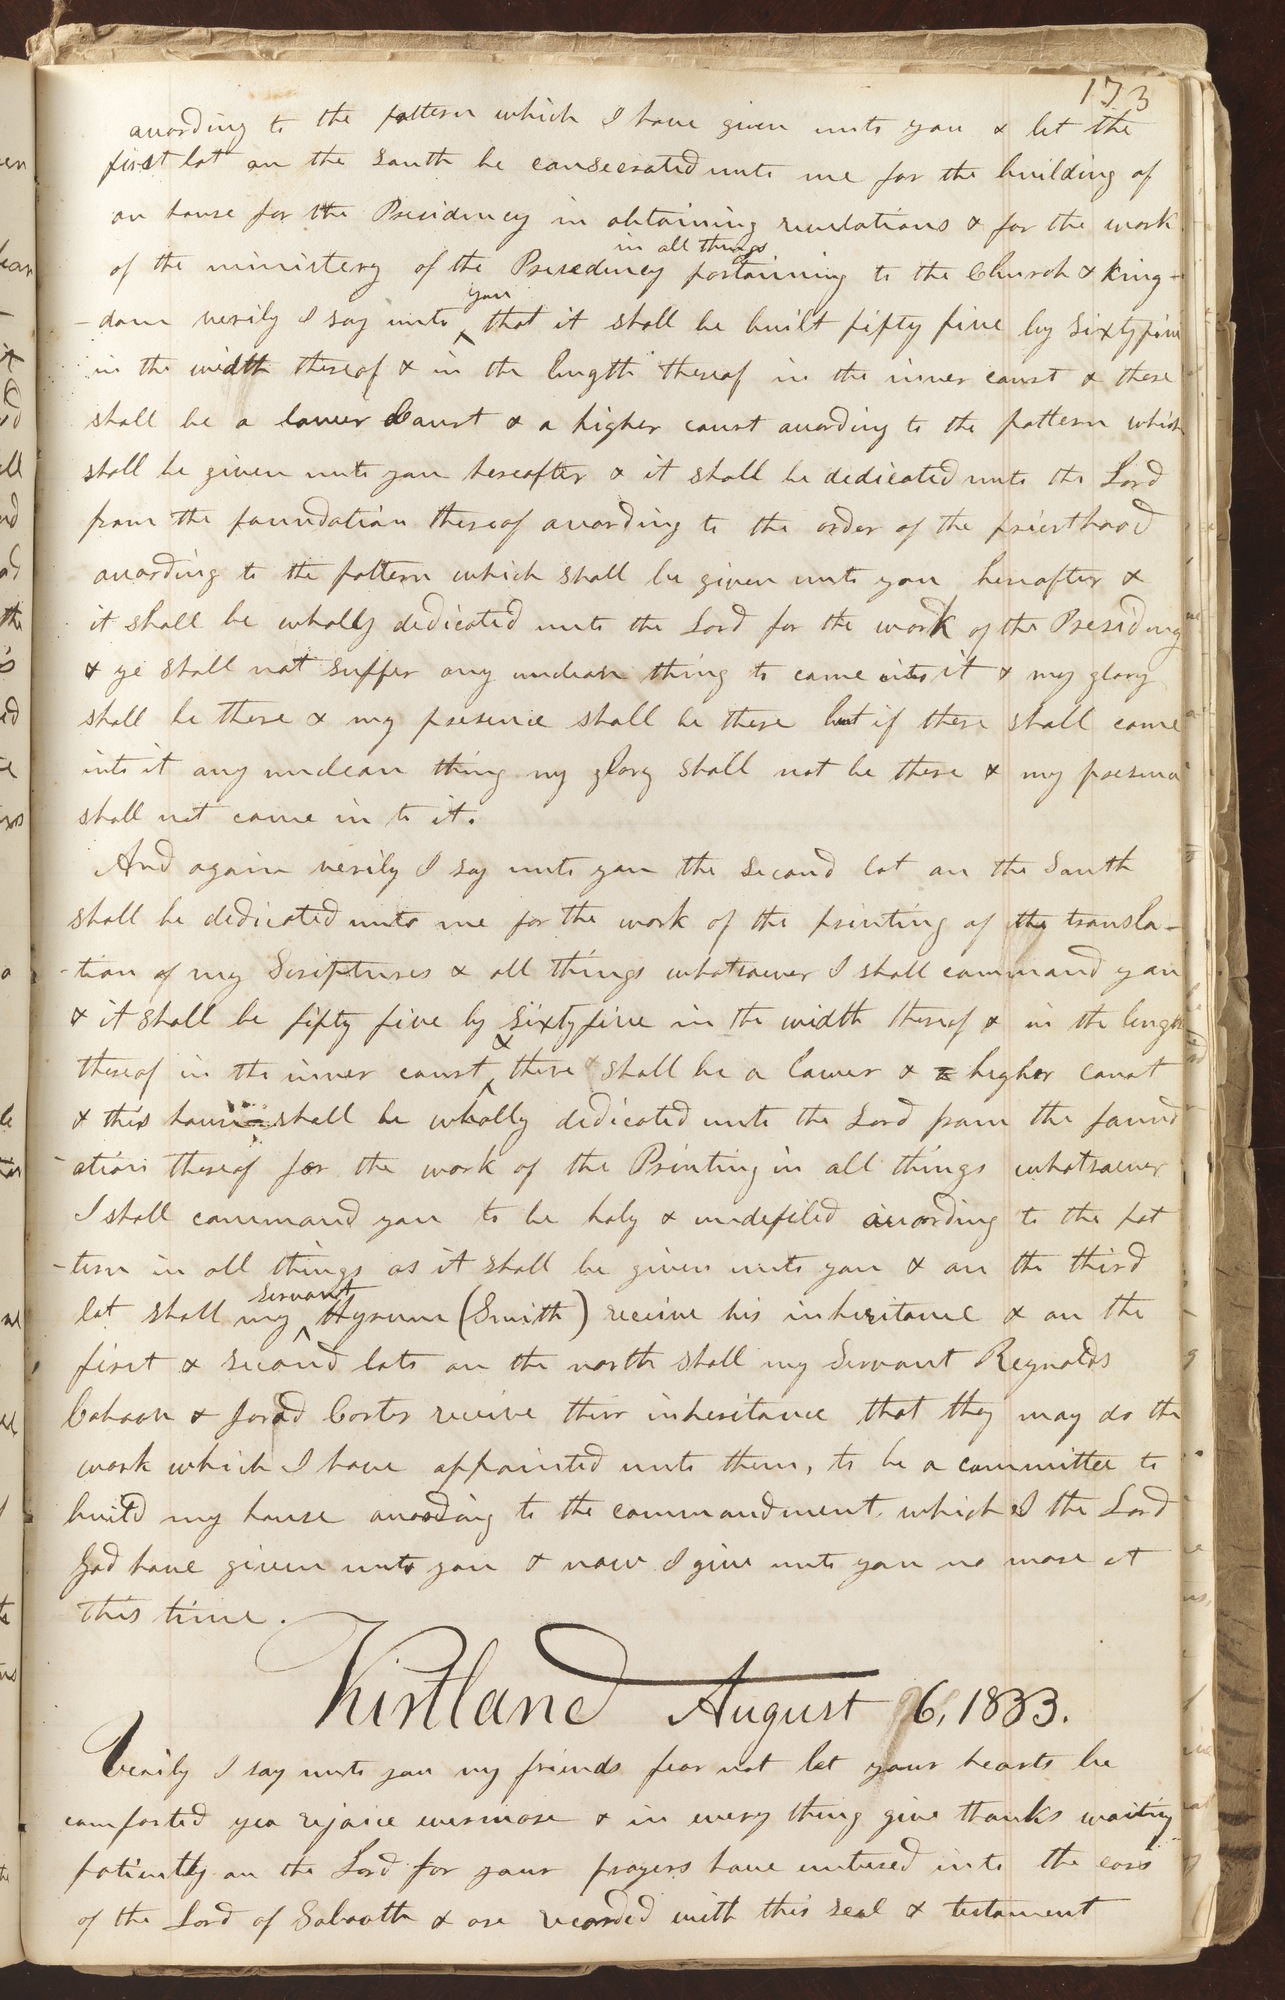 173
according to the pattern which I have given unto you & let the
first lot on the South be consecrated unto me for the building of
an house for the Presidency in obtaining revelations & for the work
of the ministery of the Presedincy in all things pertaining to the Church & King-
-dom verily I say unto you that it shall be built fifty five by Sixty five
in the width thereof & in the length thereof in the inner court & there
shall be a lower Court & a higher court according to the pattern which
shall be given unto you hereafter & it shall be dedicated unto the Lord
from the foundation thereof according to the order of the priesthood
according to the pattern which shall be given unto you hereafter &
it shall be wholly dedicated unto the Lord for the work of the Presidincy
& ye shall not suffer any unclean thing to come into it & my glory
shall be there & my presence shall be there but if there shall come
into it any unclean thing my glory shall not be there & my presence
shall not come in to it.
And again verily I say unto you the second lot on the South
shall be dedicated unto me for the work of the printing of the transla-
-tion of my Scriptures & all things whatsoever I shall command you
& it shall be fifty five by Sixty five in the width thereof & in the length
thereof in the inner court & there shall be a lower & a higher court
& this house shall be wholly dedicated unto the Lord from the found
-ation thereof for the work of the Printing in all things whatsoever
I shall command you to be holy & undefiled according to the pat
-tern in all things as it shall be given unto you & on the third
lot shall my servant Hyrum (Smith) receive his inheritance & on the
first & second lots on the north shall my Servant Reynolds
Cahoon & Jarad Carter receive their inheritance that they may do the
work which I have appointed unto them, to be a committee to
build my house according to the commandment which I the Lord
God have given unto you & now I give unto you no more at
this time.
Kirtland August 6, 1833.
Verily I say unto you my friends fear not let your hearts be
comforted yea rejoice evermore & in every thing give thanks waiting
patiently on the Lord for your prayers have entered into the ears
of the Lord of Sabaoth & are recorded with this seal & testament